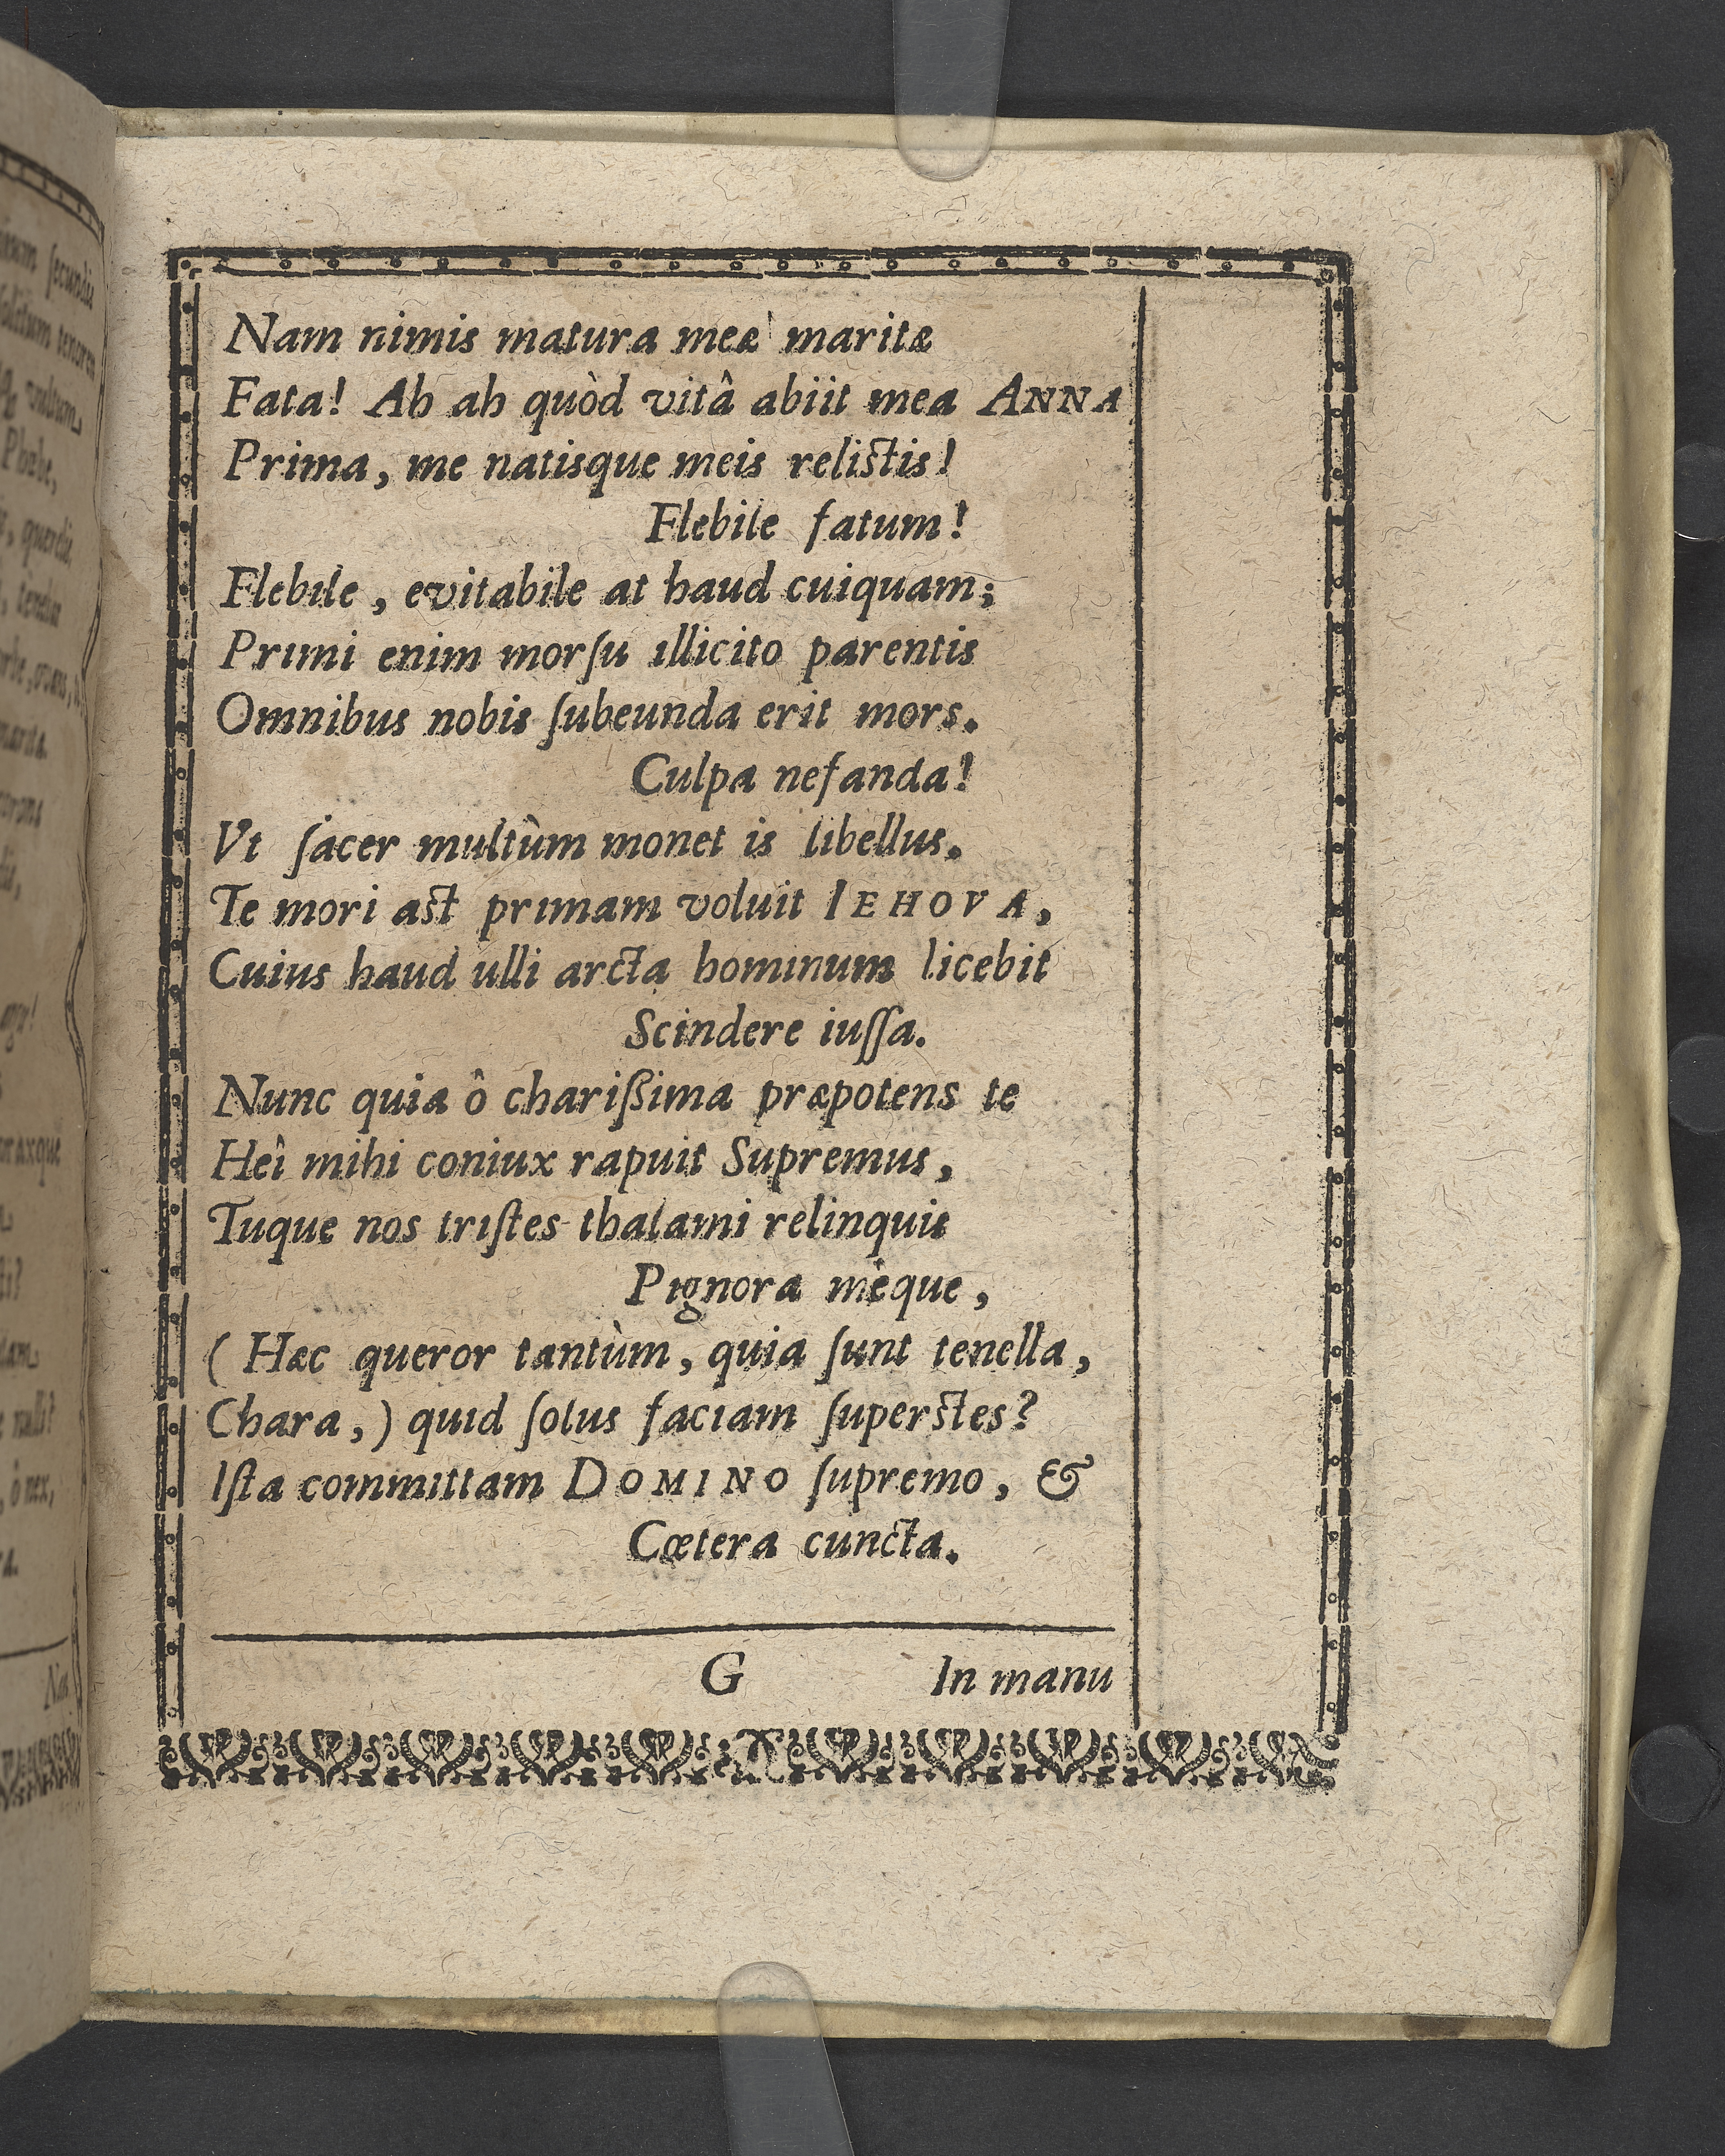 Nam nimis matura meæ maritæ
Fata! Ah ah quòd vitâ abiit mea ANNA
Prima, me natisque meis relictis!
Flebile fatum!
Flebile, evitabile at haud cuiquam;
Primi enim morſu illicito parentis
Omnibus nobis ſubeunda erit mors.
Culpa nefanda!
Vt ſacer multùm monet is libellus.
Te mori ast primam voluit IEHOVA,
Cuius haud ulli arcta hominum licebit
Scindere iuſſa.
Nunc quia ô chariſsima præpotens te
Heî mihi coniux rapuit Supremus,
Tuque nos triſtes thalami relinquis
Pignora mèque,
(Hæc queror tantùm, quia ſunt tenella,
Chara,) quid ſolus faciam ſuperstes?
Iſta committam DOMINO ſupremo, &
Cœtera cuncta.
G In manu